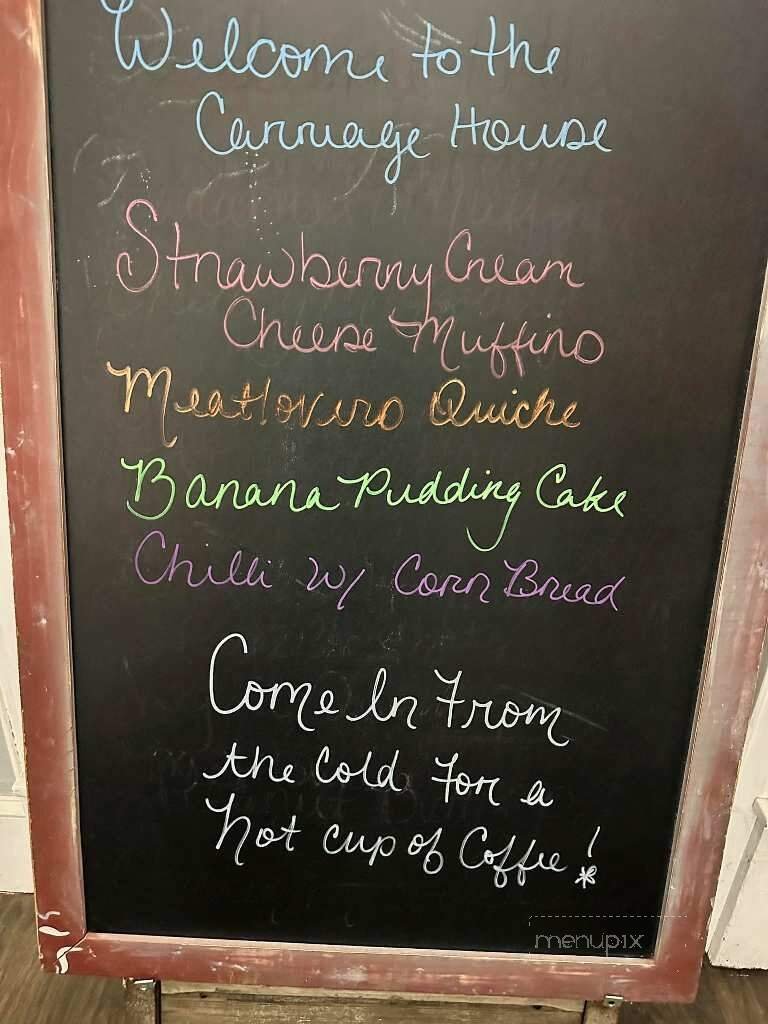 Welcome to the
Carriage House
Strawberry Cream
Cheese Muffins
Meatlovers Quiche
Banana Pudding Cake
Chilli w/ Corn Bread
Come In From
the Cold For a
hot cup of Coffee!
menupix